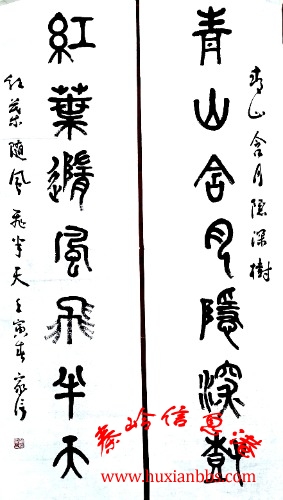 青山含月隱深樹
青山含月隱深樹
紅葉隨風飛半天
红葉随風飛半天 壬寅春 家信
秦岭信息港
www.huxianbbs.com